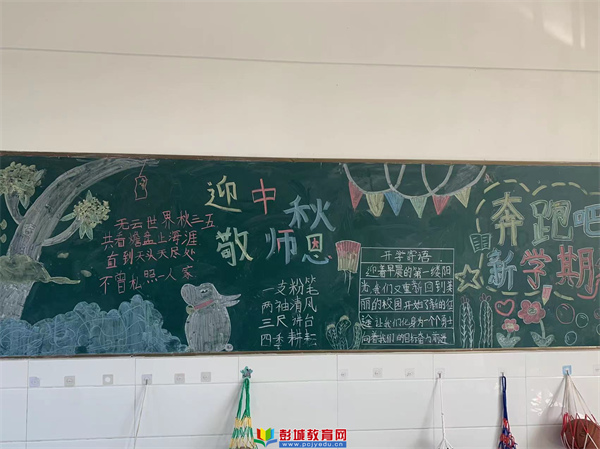 无云世界秋三五
共看蟾盘上海涯
直到天头天尽处
不曾私照一人家
迎中秋
敬师恩
一支粉笔
两袖清风
三尺讲台
四季耕耘
开学寄语
迎着早晨的第一缕阳
光我们又重新回到美
丽的校园开始了新的征
途让我们化身为一个个勇士
向着我们的目标奋力前进
奔跑吧
新学期
彭城教育网
www.pcjyedu.cn